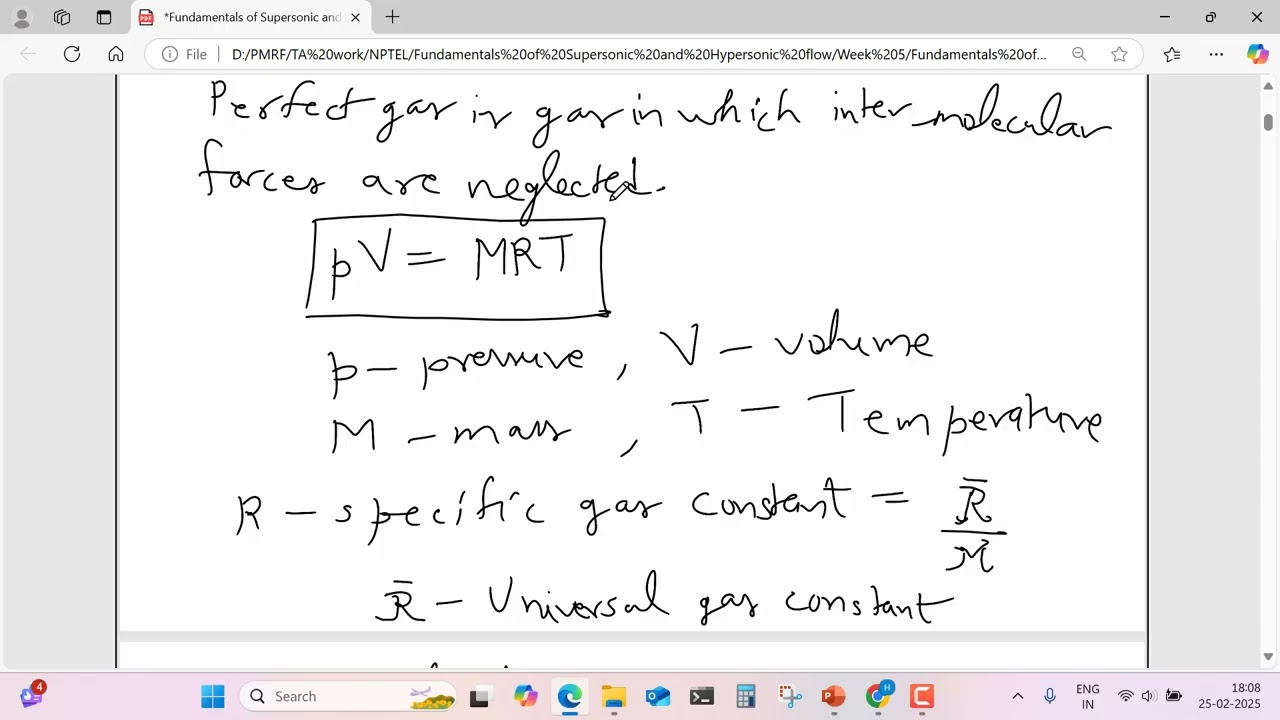 *Fundamentals of Supersonic and
File
D:/PMRF/TA%20work/NPTEL/Fundamentals%20of%20Supersonic%20and%20Hypersonic%20flow/Week%205/Fundamentals%20of...
Perfect gas is gas in which inter-molecular
forces are neglected.
pV = MRT
p - pressure, V - volume
M - mass, T - Temperature
R - specific gas constant = R̄/ℳ
R̄ - Universal gas constant
4
Search
ENG
IN
18:08
25-02-2025